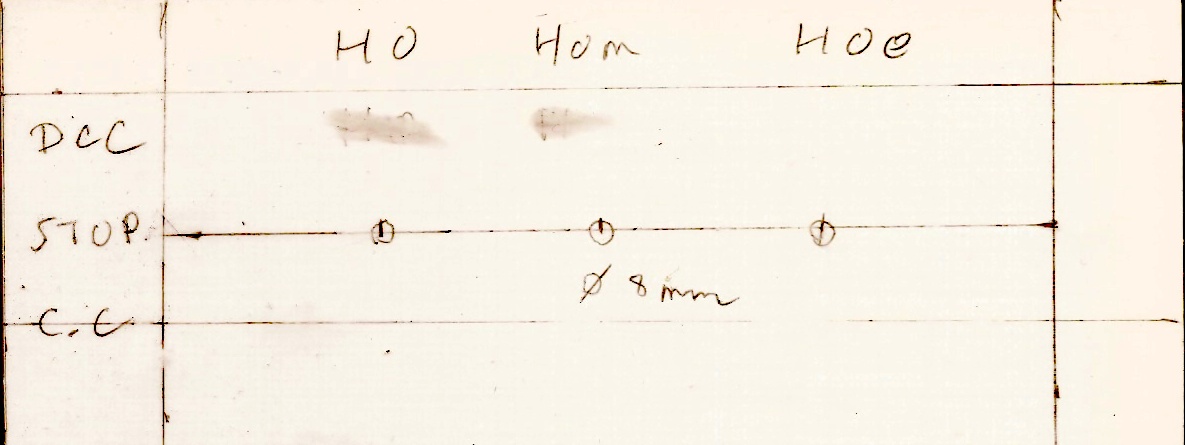 HO HOm HOe
DCC
STOP
Ø 8 mm
C.C